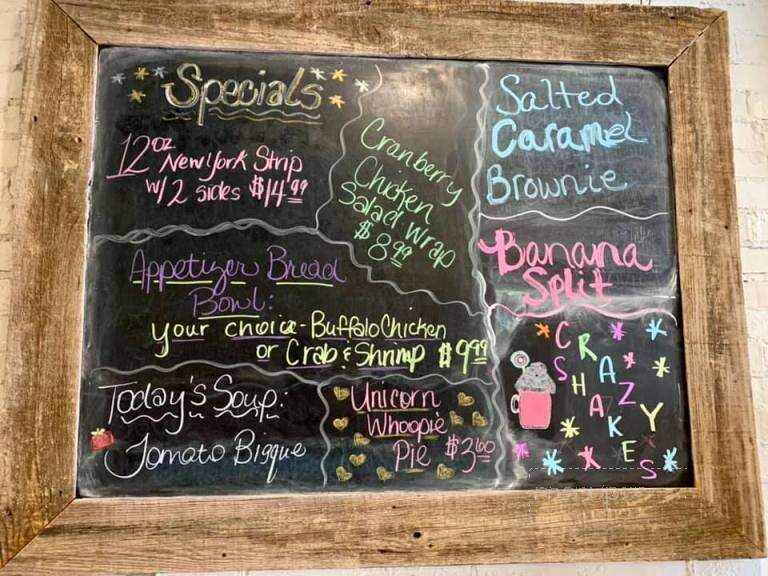 Specials
12oz New York Strip
w/2 sides $14.99
Cranberry
Chicken
Salad Wrap
$8.99
Salted
Caramel
Brownie
Banana
Split
Appetizer Bread
Bowl:
your choice - Buffalo Chicken
or Crab & Shrimp $9.99
Today's Soup:
Tomato Bisque
Unicorn
Whoopie
Pie $3.60
CRAZY
SHAKES